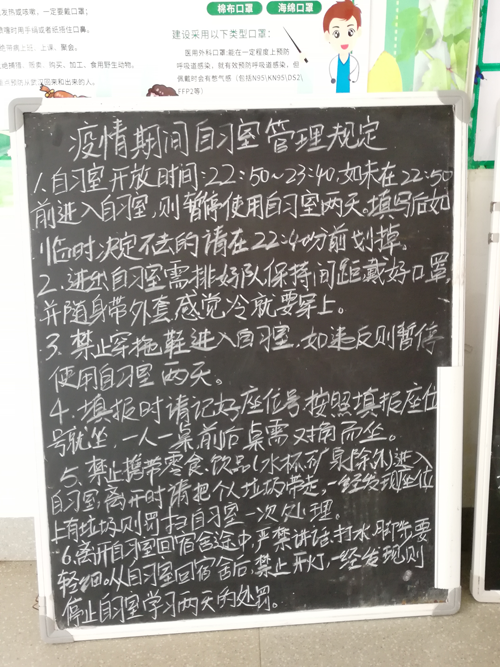 棉布口罩
海绵口罩
建议采用以下类型口罩：
医用外科口罩：能在一定程度上预防
呼吸道感染，就有效预防呼吸道感染，但
佩戴时会有憋气感（包括N95\KN95\DS2\
FFP2等）
疫情期间自习室管理规定
1.自习室开放时间:22:50~23:40,如未在22:50
前进入自习室,则暂停使用自习室两天。填写后如
临时决定不去的请在22:40分前划掉。
2.进出自习室需排好队保持间距戴好口罩,
并随身带外套感觉冷就要穿上。
3.禁止穿拖鞋进入自习室,如违反则暂停
使用自习室两天。
4.填报时请记好座位号,按照填报座位
号就坐,一人一桌前后桌需对角而坐。
5.禁止携带零食、饮品(水杯、矿泉除外)进入
自习室,离开时请把个人垃圾带走,一经发现座位
上有垃圾则罚扫自习室一次处理。
6.离开自习室回宿舍途中,严禁讲话、打水,脚步要
轻细。从自习室回宿舍后,禁止开灯,一经发现则
停止自习室学习两天的处罚。